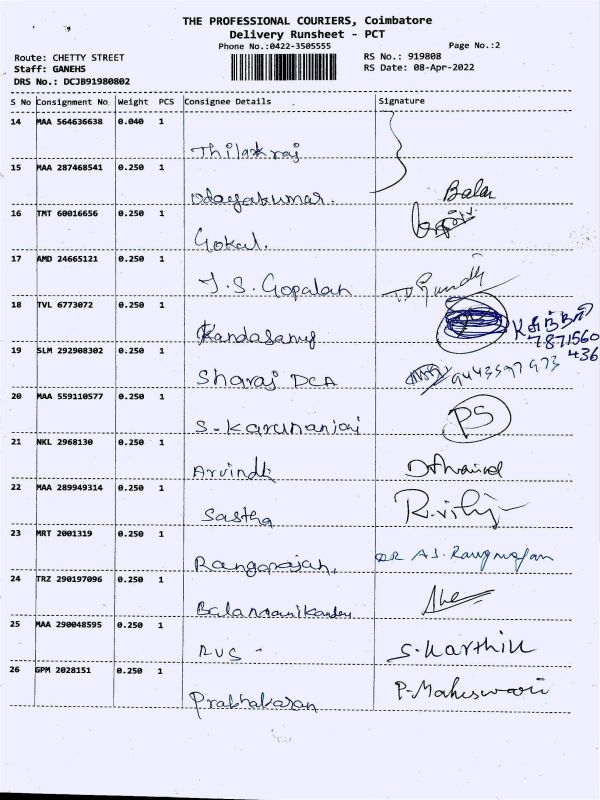 THE PROFESSIONAL COURIERS, Coimbatore
Delivery Runsheet - PCT
Phone No.:0422-3505555
Page No.:2
Route: CHETTY STREET
RS No.: 919808
Staff: GANEHS
RS Date: 08-Apr-2022
DRS No.: DCJB91980802
S No Consignment No. Weight PCS Consignee Details Signature
14 MAA 564636638 0.040 1
Thilakraj
15 MAA 287468541 0.250 1
Udayakumar. Balar
16 TMT 60016656 0.250 1
Gokul.
17 AMD 24665121 0.250 1
T.S. Gopalan
18 TVL 6773072 0.250 1
Kandasamy
7871560
436
19 SLM 292908302 0.250 1
Sharaj DCA 9443597973
20 MAA 559110577 0.250 1
S. Karunanjai PS
21 NKL 2968130 0.250 1
Arvindh
22 MAA 289949314 0.250 1
Sastha
23 MRT 2001319 0.250 1
Rangarajah.
24 TRZ 290197096 0.250 1
Balamanikandan
25 MAA 290048595 0.250 1
RVS - S. Karthik
26 GPM 2028151 0.250 1
Prabhakaran P. Maheswari